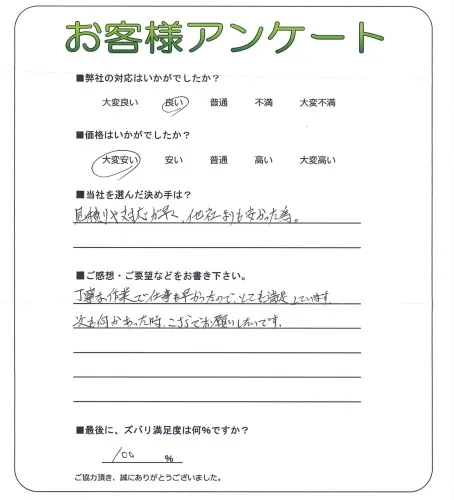 お客様アンケート
■弊社の対応はいかがでしたか？
大変良い 良い 普通 不満 大変不満
■価格はいかがでしたか？
大変安い 安い 普通 高い 大変高い
■当社を選んだ決め手は？
見積りや対応が早く、他社よりも安かった為。
■ご感想・ご要望などをお書き下さい。
丁寧な作業で仕事も早かったので、とても満足しています。
次も何かあった時、こちらでお願いしたいです。
■最後に、ズバリ満足度は何%ですか？
100 %
ご協力頂き、誠にありがとうございました。